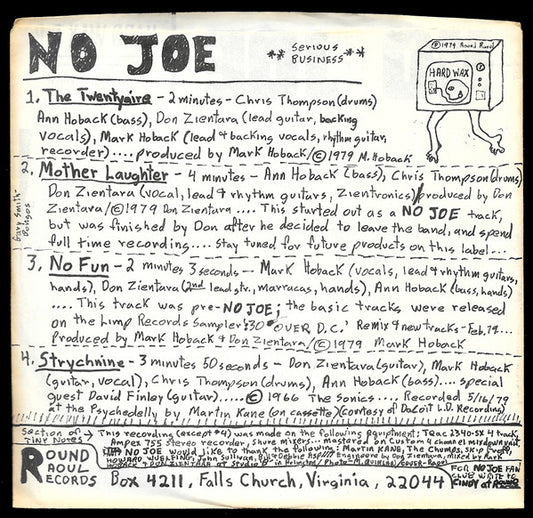 NO JOE
** SERIOUS BUSINESS **
©1979 Round Raoul
HARD WAX
1. The Twentyaire - 2 minutes - Chris Thompson (drums)
Ann Hoback (bass), Don Zientara (lead guitar, backing
vocals), Mark Hoback (lead & backing vocals, rhythm guitar,
recorder).... produced by Mark Hoback/©1979 M. Hoback
2. Mother Laughter - 4 minutes - Ann Hoback (bass), Chris Thompson (drums)
Don Zientara (vocal, lead & rhythm guitars, Zientronics)/produced by Don
Zientara/©1979 Don Zientara .... This started out as a NO JOE track,
but was finished by Don after he decided to leave the band, and spend
full time recording.... stay tuned for future products on this label...
Gary Smith-
Bongos
3. No Fun - 2 minutes 3 seconds - Mark Hoback (vocals, lead & rhythm guitars,
hands), Don Zientara (2nd lead gtr., marracas, hands), Ann Hoback (bass, hands)
.... This track was pre-NO JOE; the basic tracks were released
on the Limp Records Sampler ':30 OVER D.C.' Remix & new tracks - Feb. 79...
Produced by Mark Hoback & Don Zientara/©1979 Mark Hoback
4. Strychnine - 3 minutes 50 seconds - Don Zientara (guitar), Mark Hoback
(guitar, vocal), Chris Thompson (drums), Ann Hoback (bass).... special
guest David Finloy (guitar)..... © 1966 The Sonics.... Recorded 5/16/79
at the Psychedelly by Martin Kane (on cassette) (courtesy of DaCoit L.D. Recording)
Section of → This recording (except #4) was made on the following equipment: Teac 2340-SX 4 track,
TINY NOTES Ampex 755 stereo recorder, shure mixers.. mastered on custom 4 channel
NO JOE would like to thank the following: Martin KANE, The Chumps, Skip Groff,
HOWARD WUELFING, John Sullivan, Bill & Debbie Engineered by Don Zientara, mixed by Mark
HOBACK & DON ZIENTARA at Studio
ROUND
RAOUL
RECORDS
Box 4211, Falls Church, Virginia, 22044
FOR NO JOE FAN
CLUB WRITE TO
CINDY at